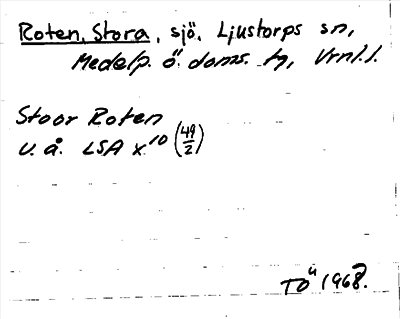 Roten, Stora, sjö, Ljustorps sn,
Medelp. ö. doms. tg, Vrnl. l.
Stoor Roten
u. å. LSA x¹⁰ (49/2)
TÖ 1968.